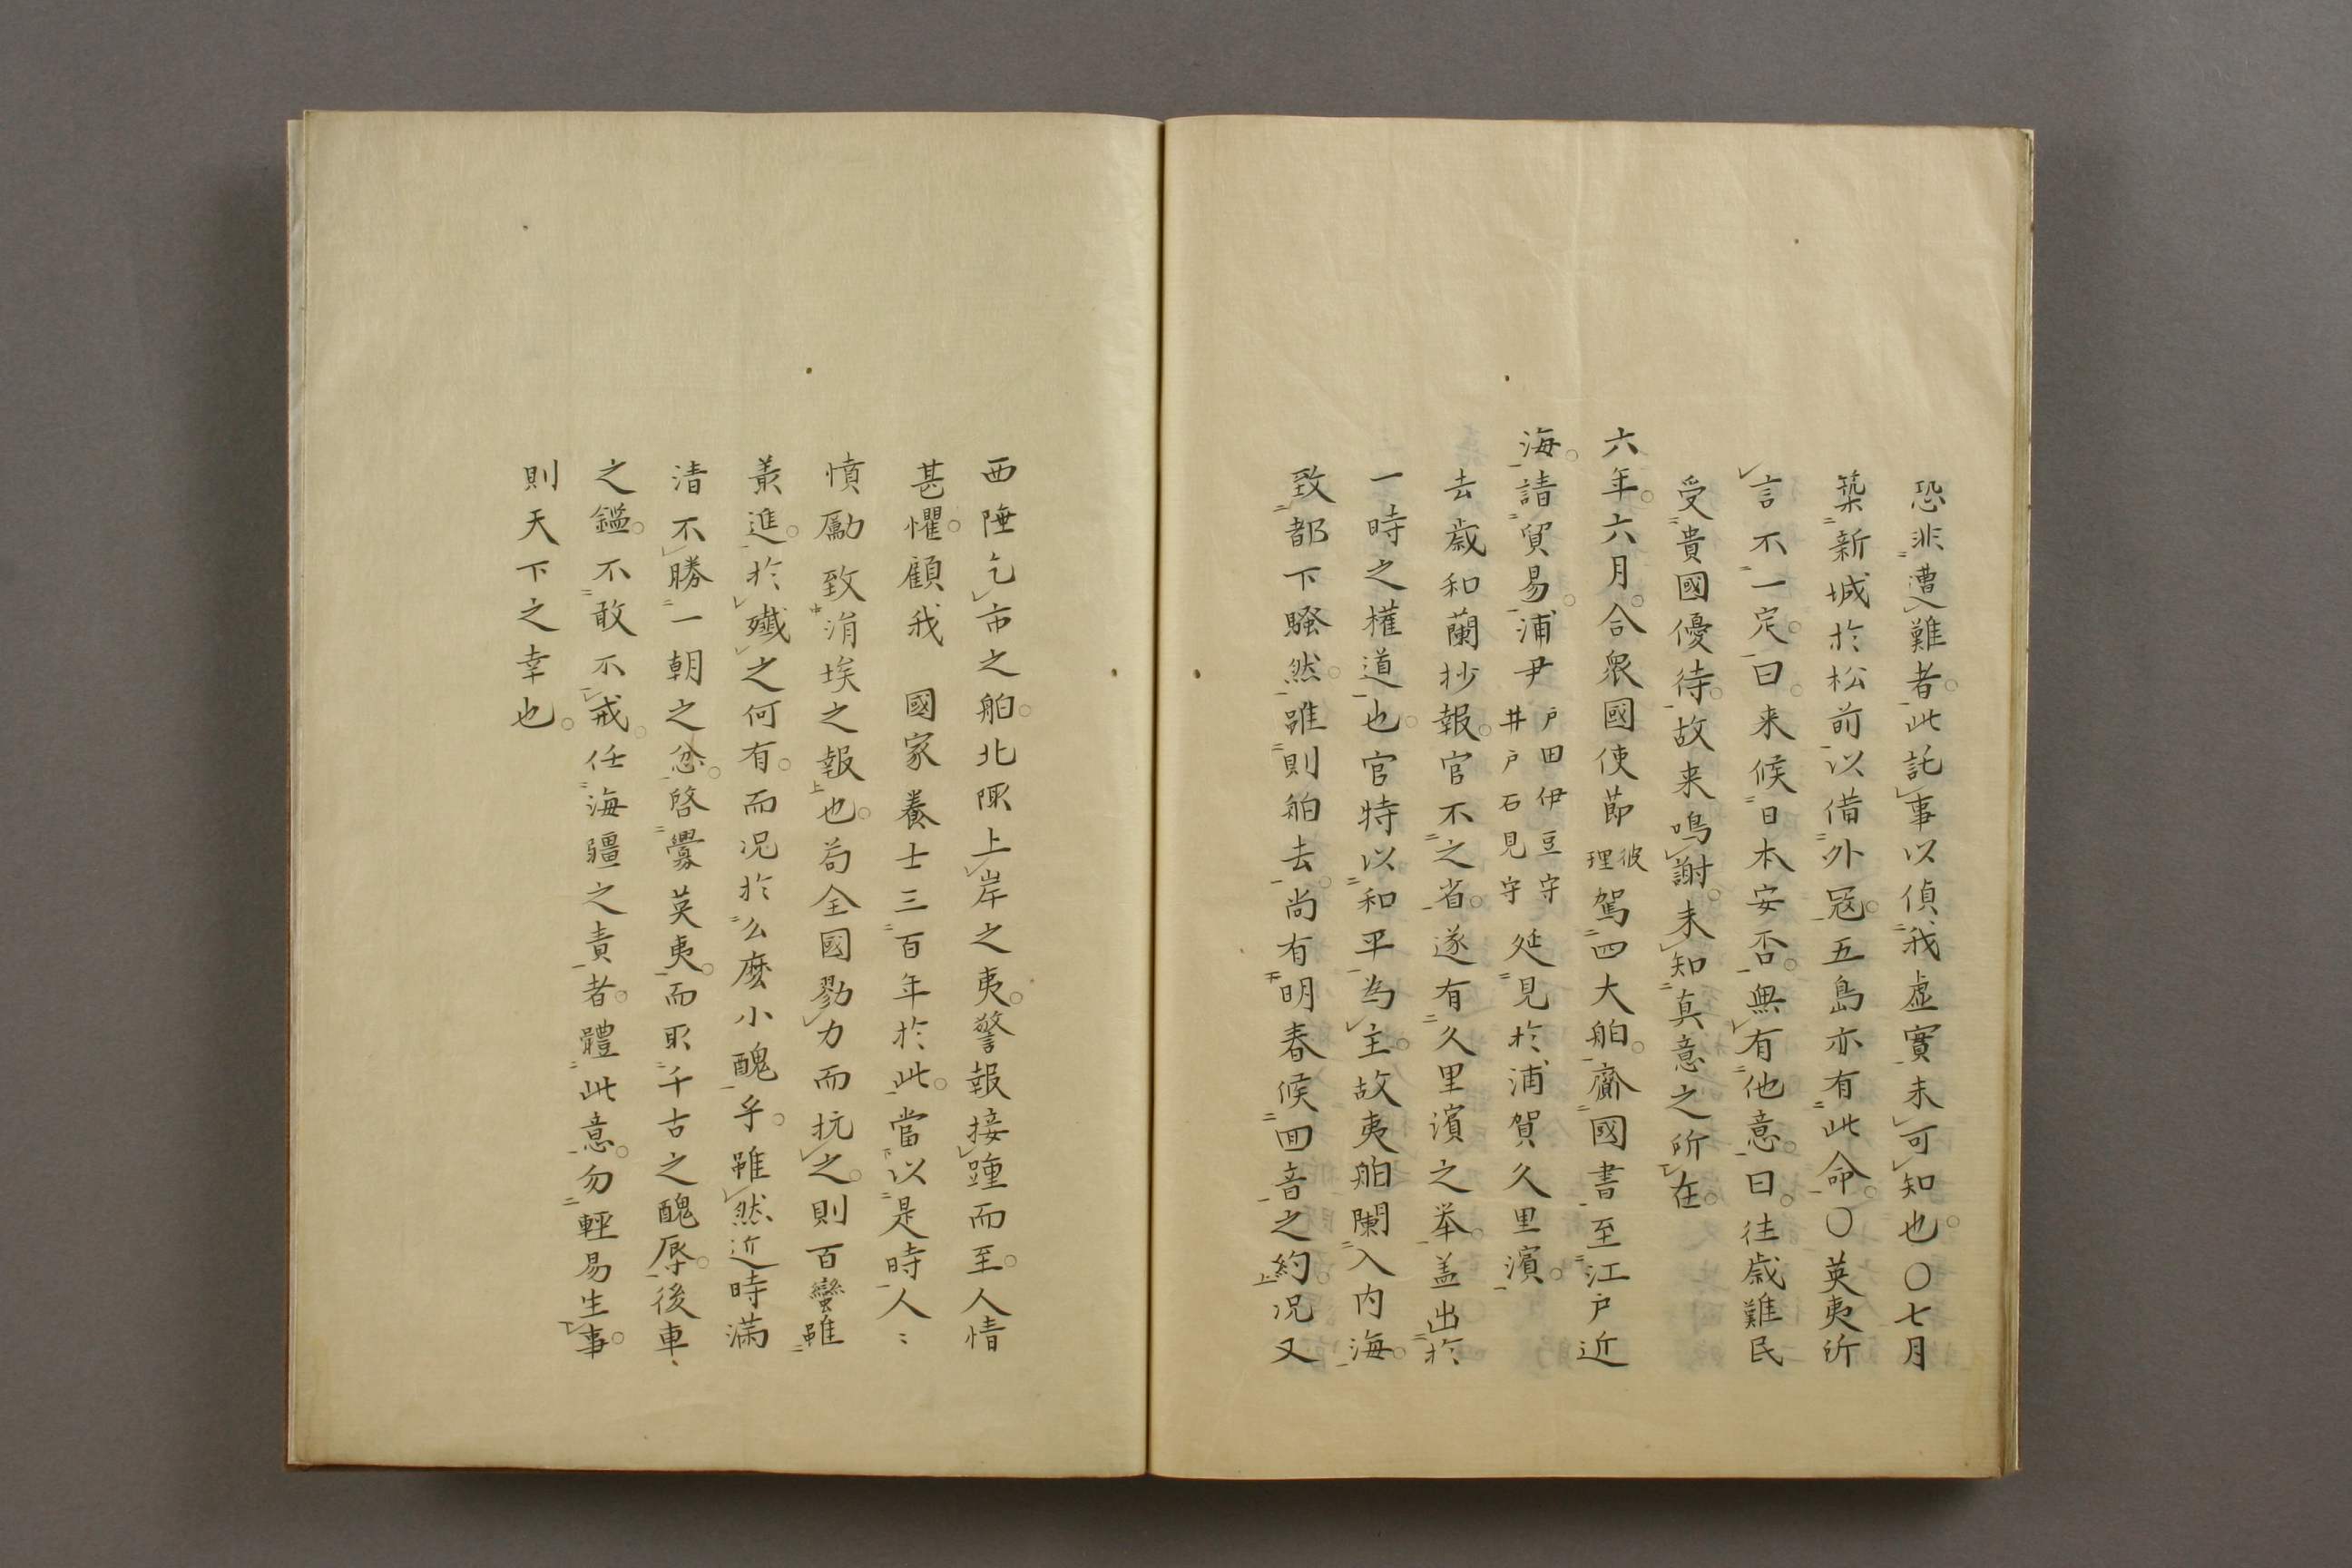 恐非遭難者。此託事以偵我虚實未可知也。〇七月
築新城於松前以備外冦。五島亦有此命。〇英夷所
言不一定。曰。来候日本安否。無有他意。曰。往歳難民
受貴國優待。故来鳴謝。未知真意之所在。
六年。六月。合衆國使節彼理駕四大舶。齎國書至江戸近
海。請貿易。浦尹戸田伊豆守井戸石見守延見於浦賀久里濱。
去歳和蘭抄報。官不之省。遂有久里濱之举。盖出於
一時之権道也。官特以和平為主。故夷舶闌入内海。
致都下騒然。雖則舶去。尚有明春候回音之約。况又
西陲乞市之舶。北陬上岸之夷。警報接踵而至。人情
甚懼。顧我　國家養士三百年於此。當以是時人〻
憤勵致涓埃之報也。苟全國勠力而抗之。則百蠻雖
叢進。於殲之何有。而况於么麽小醜乎。雖然近時滿
清不勝一朝之忿。啓釁英夷。而取千古之醜辱。後車
之鑑。不敢不戒。任海疆之責者。體此意。勿輕易生事。
則天下之幸也。